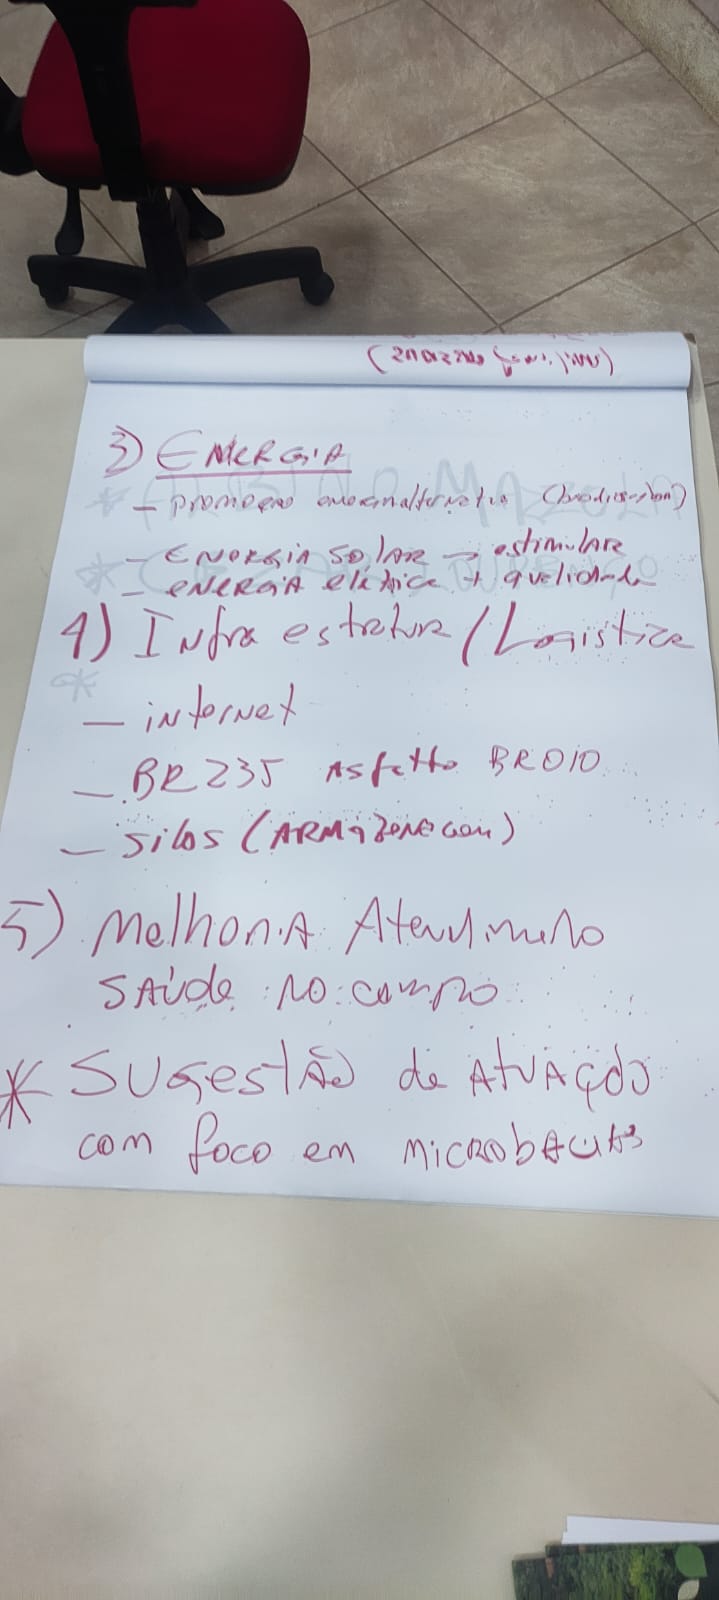 3) ENERGIA
- promoção energia alternativa
- ENERGIA SOLAR → estimular
- ENERGIA elétrica + qualidade
4) Infra estrutura / Logistica
- internet
- BR 235 Asfalto BR 010
- Silos (ARMAZENAGEM)
5) Melhoria Atendimento
SAúde no campo
* SUGestÃO de AtuAção
com foco em microbacias